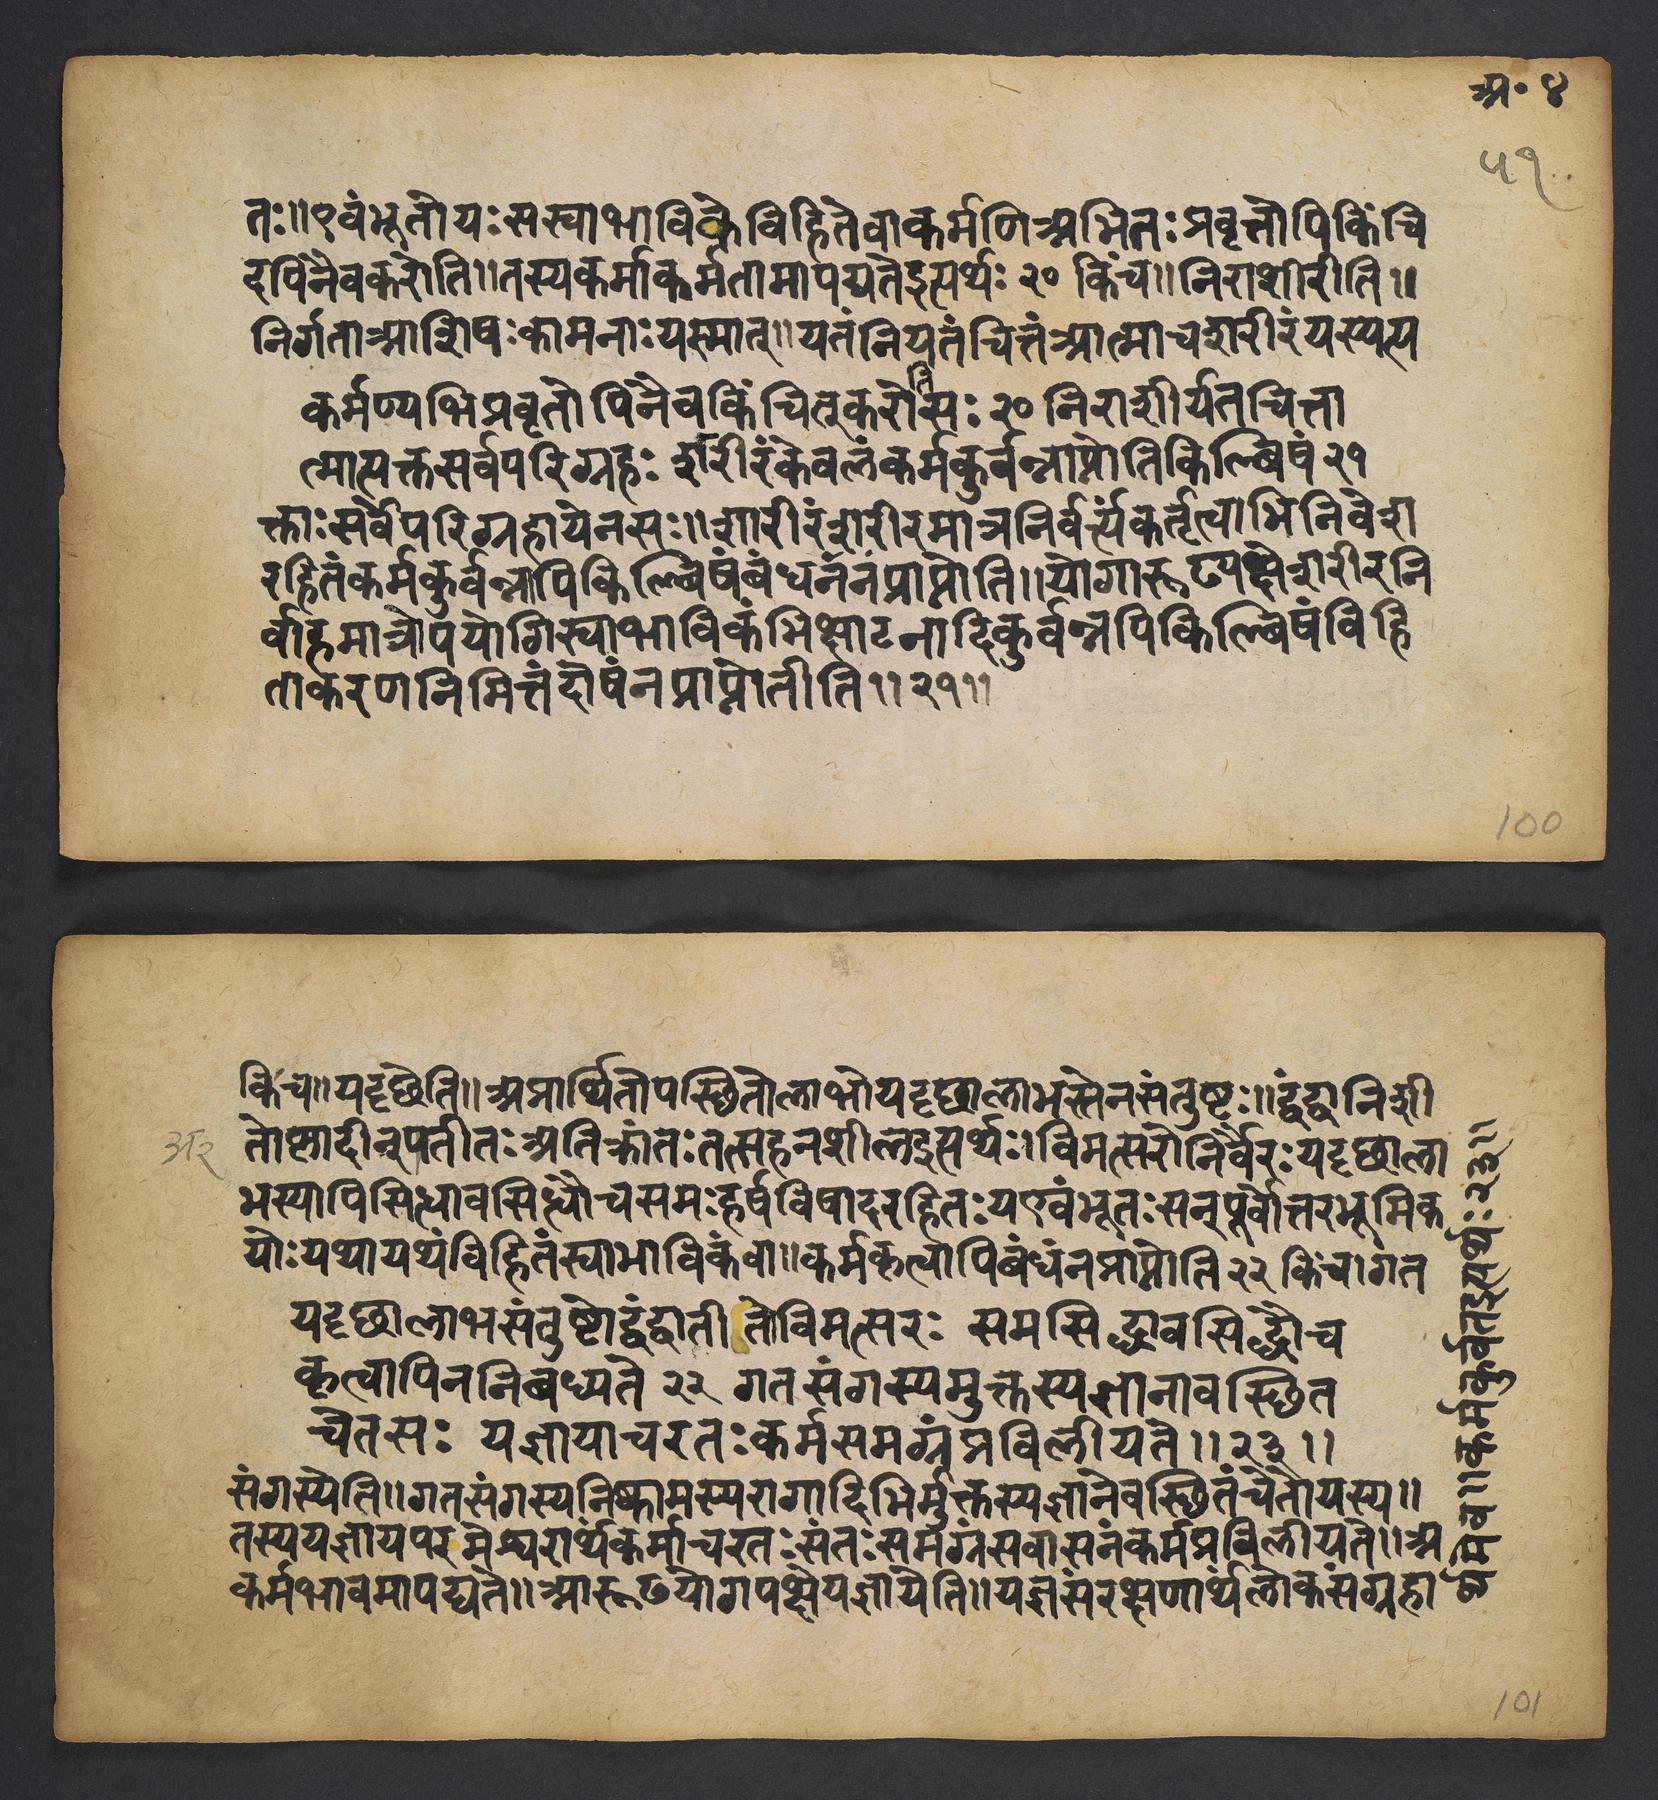 अ॰ ४
५१
तः॥एवंभूतोयःसस्वाभाविकेविहितेवाकर्मणिअभितःप्रवृत्तोपिकिंचि
दपिनैवकरोति॥तस्यकर्माकर्मतामापद्यतेइत्यर्थः २० किंच॥निराशीरीति॥
निर्गताआशिषःकामनाःयस्मात्॥यतंनियतंचित्तंआत्माचशरीरंयस्यत्य
कर्मण्यभिप्रवृतोपिनैवकिंचित्करोतिसः २० निराशीर्यतचित्ता
त्मात्यक्तसर्वपरिग्रहः शरीरंकेवलंकर्मकुर्वन्नाप्नोतिकिल्बिषं २१
क्ताःसर्वेपरिग्रहायेनसः॥शारीरंशरीरमात्रनिर्वर्त्यंकर्तृत्वाभिनिवेश
रहितंकर्मकुर्वन्नापिकिल्बिषंबंधनंनप्राप्नोति॥योगारूढपक्षेशरीरनि
र्वाहमात्रोपयोगिस्वाभाविकंभिक्षाटनादिकुर्वन्नपिकिल्बिषंविहि
ताकरणनिमित्तंदोषंनप्राप्नोतीति॥२१॥
100
किंच॥यदृछेति॥अप्रार्थितोपस्छितोलाभोयदृछालाभस्तेनसंतुष्टः॥द्वंद्वानिशी
तोष्णादीन्यतीतःअतिक्रांतःतत्सहनशीलइत्यर्थः।विमत्सरोनिर्वैरःयदृछाला
भस्यापिसिध्यावसिध्यौचसमःहर्षविषादरहितःयएवंभूतःसन्पूर्वोत्तरभूमिक
योःयथायथंविहितंस्वाभाविकंवा॥कर्मकृत्वापिबंधंनप्राप्नोति २२ किंच।गत
यदृछालाभसंतुष्टोद्वंद्वातीतोविमत्सरः समसिद्धावसिद्धौच
कृत्वापिननिबध्यते २२ गतसंगस्यमुक्तस्यज्ञानावस्छित
चेतसः यज्ञायाचरतःकर्मसमग्रंप्रविलीयते॥२३॥
संगस्येति॥गतसंगस्यनिष्कामस्यरागादिभिर्मुक्तस्यज्ञानेवस्छितंचेतोयस्य॥
तस्ययज्ञायपरमेश्वरार्थंकर्माचरतःसंतःसमग्रंसवासनंकर्मप्रविलीयते॥अ
कर्मभावमापद्यते॥आरूढयोगपक्षेयज्ञायेति॥यज्ञसंरक्षणार्थंलोकसंग्रहा
101